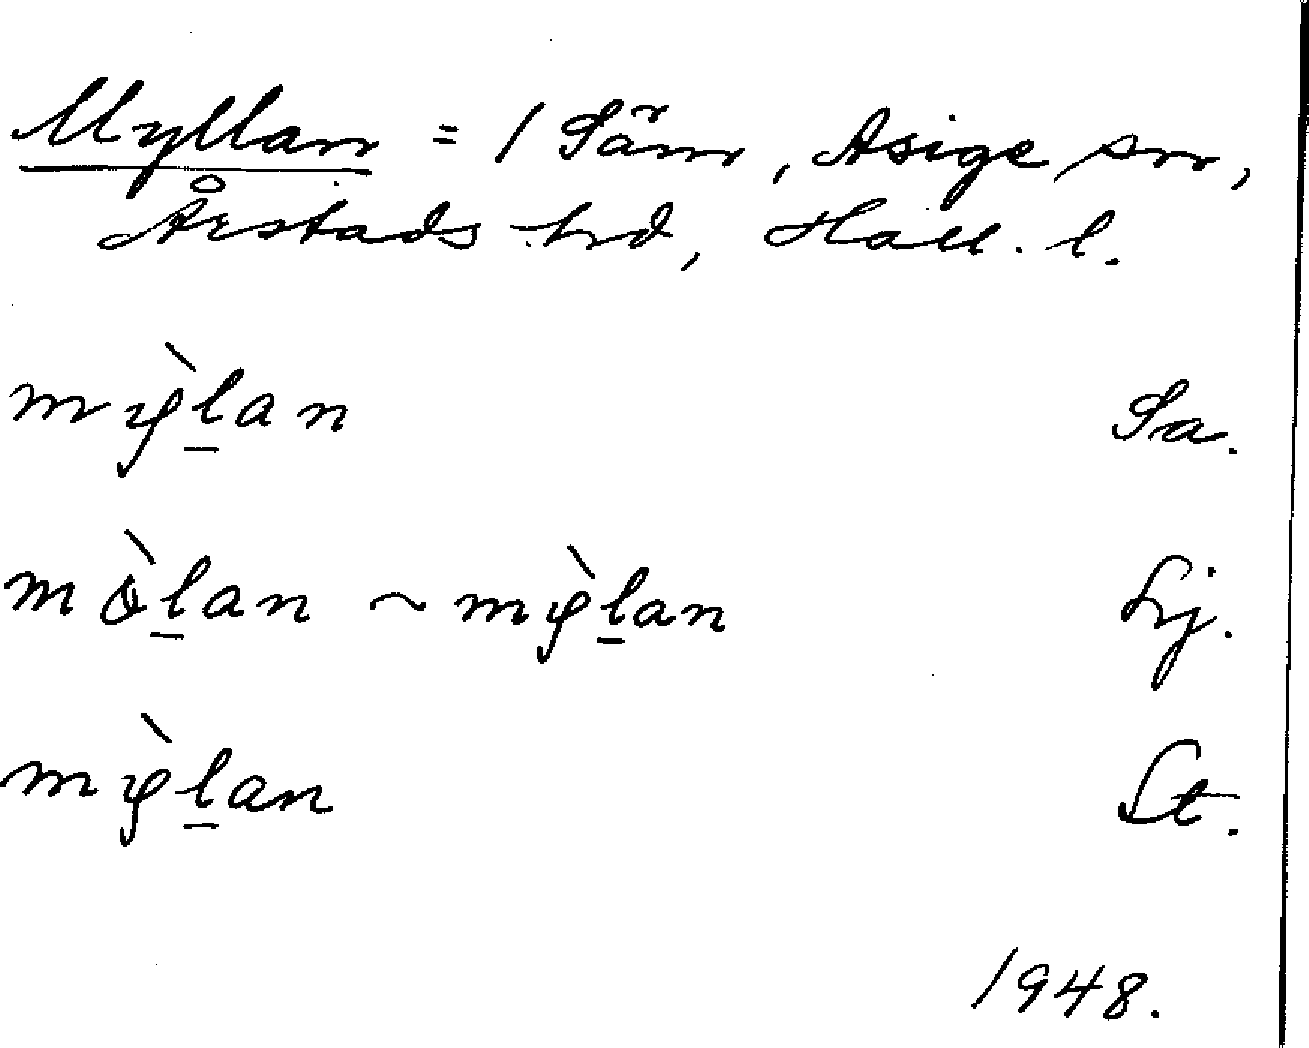 Myllan = 1 Särn, Asige sn,
Årstads hd, Hall. l.
mỳḻan Sa.
mòḻan ~ mỳḻan Lj.
mỳḻan St.
1948.